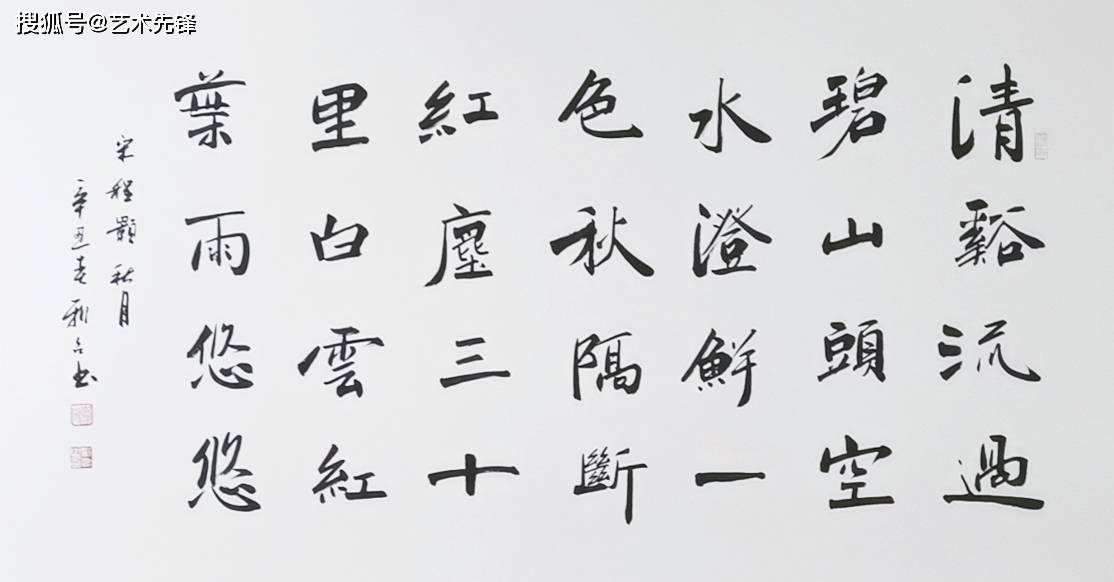 搜狐号@艺术先锋
清谿流過
碧山頭空
水澄鮮一
色秋隔斷
紅塵三十
里白雲紅
葉雨悠悠
宋程顥秋月
辛丑春雅
书